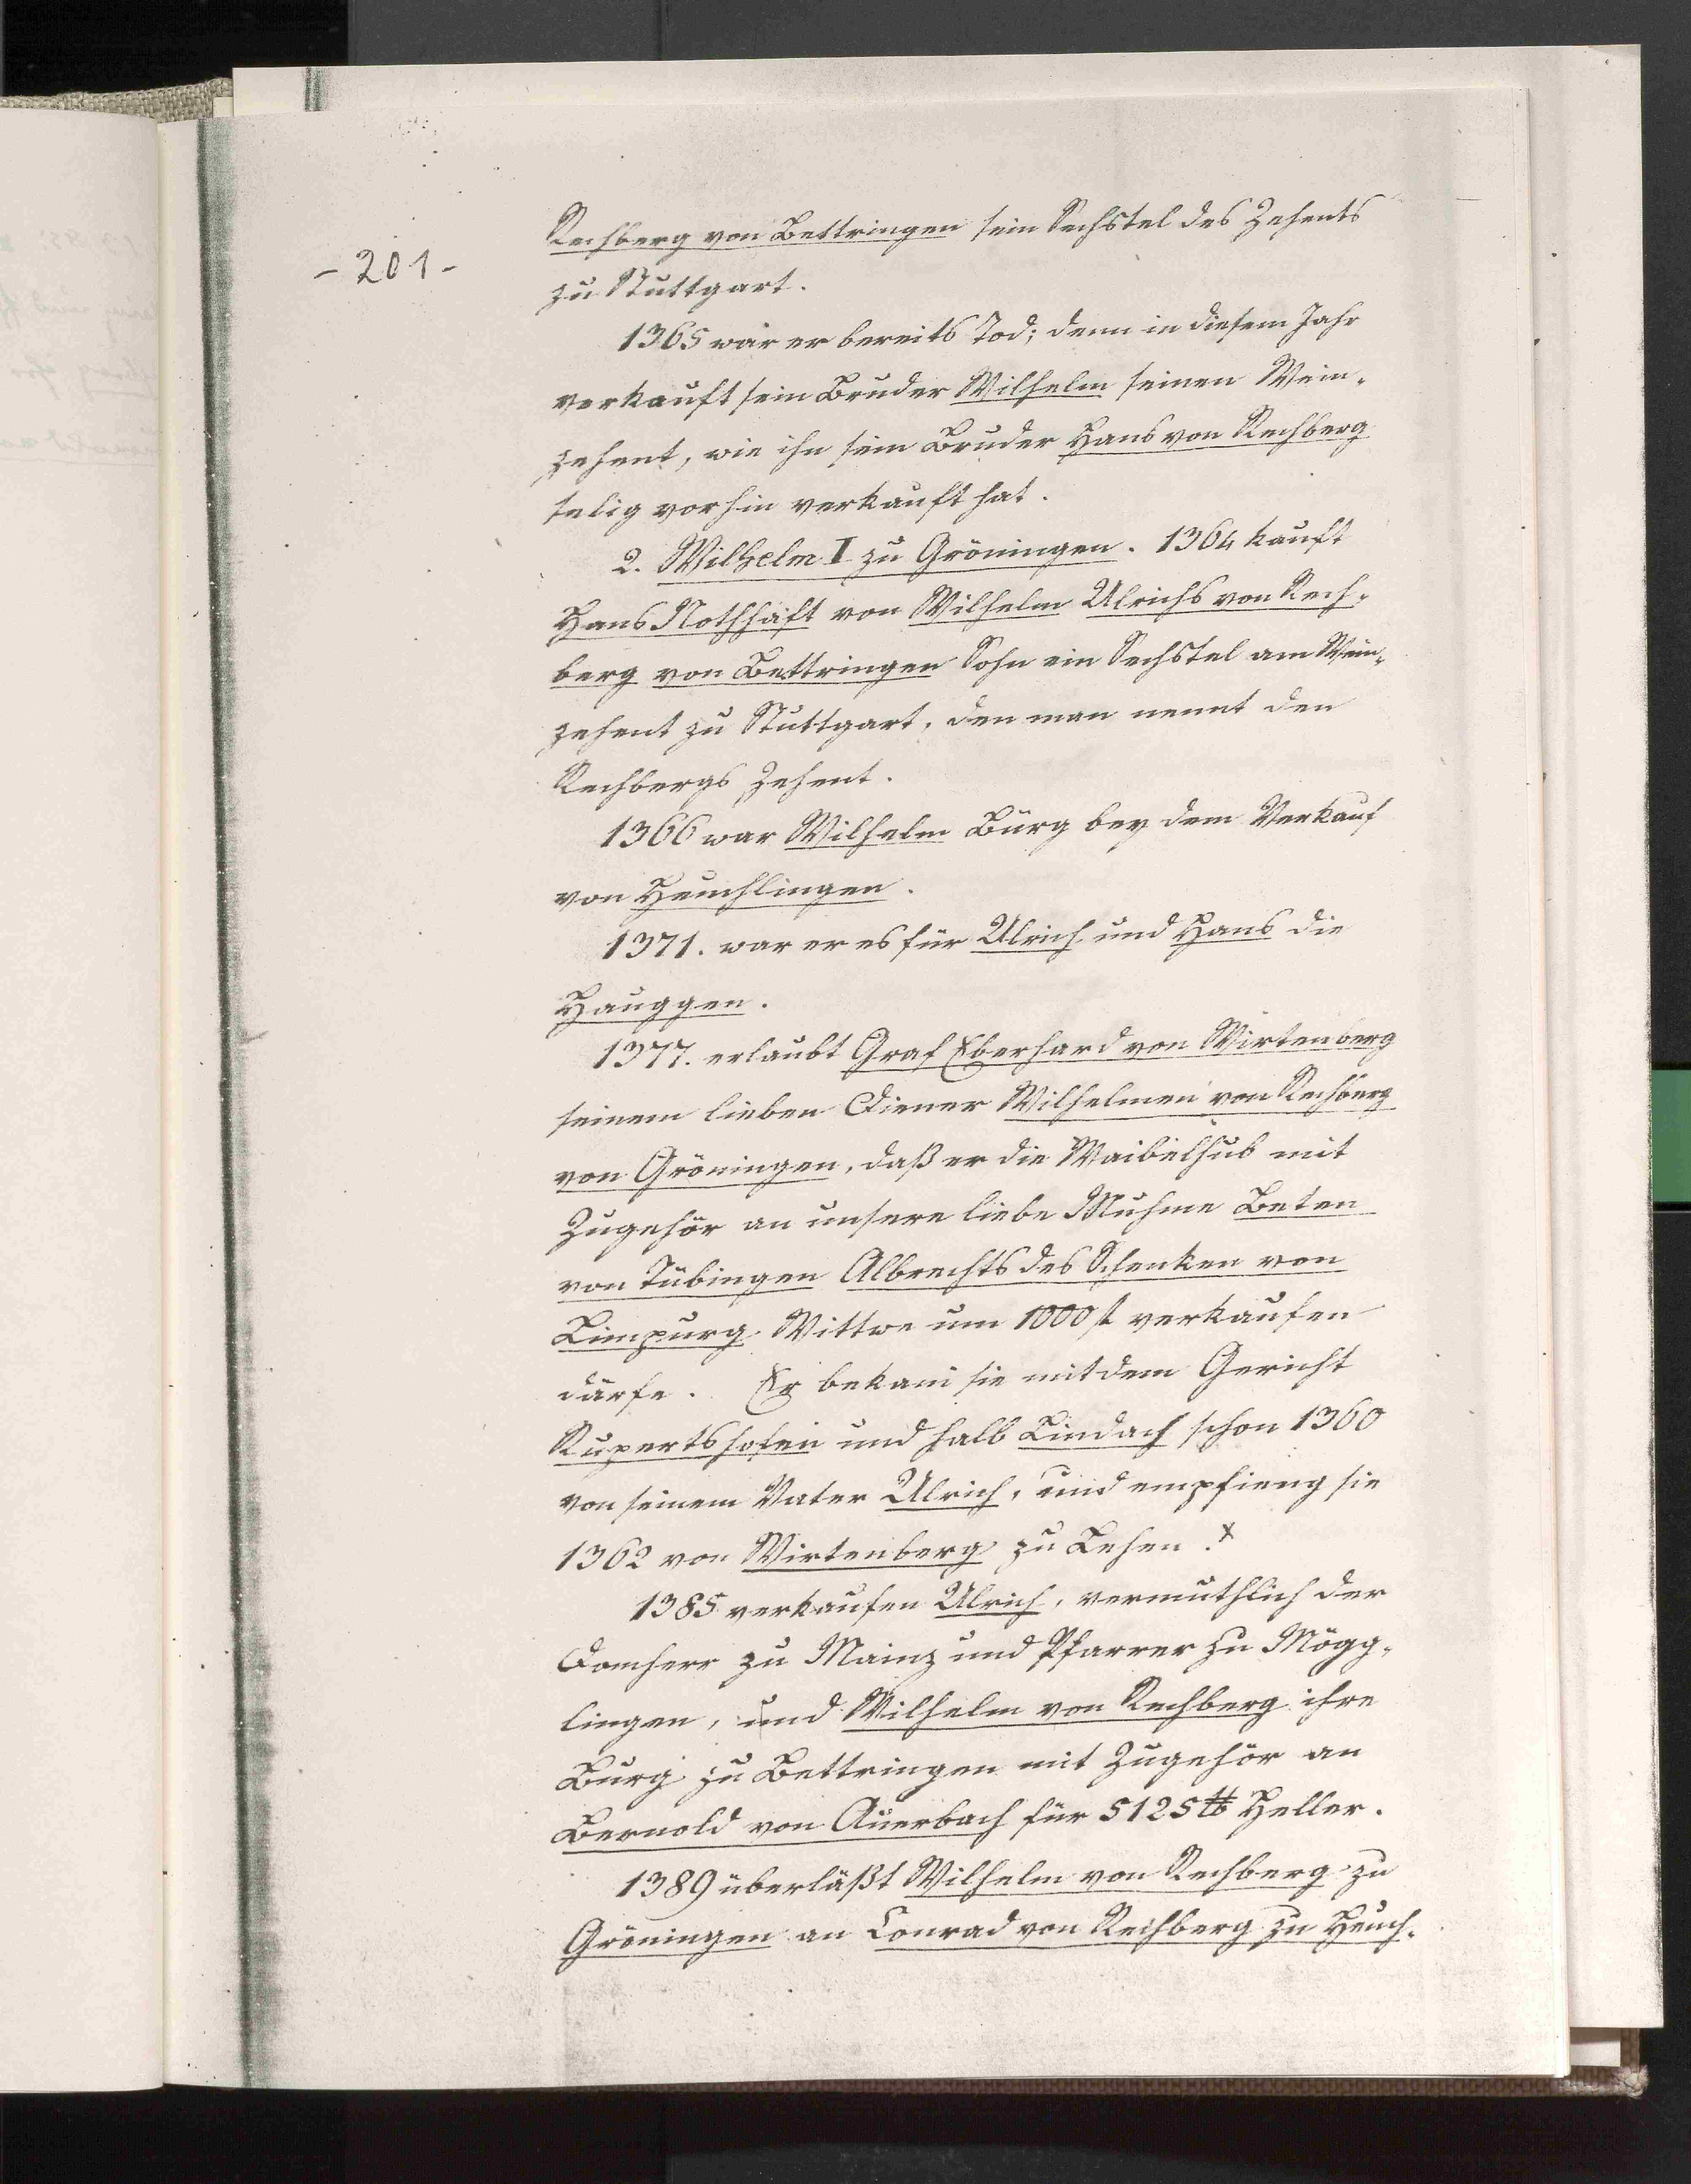 - 201 -
Rechberg von Bettringen sein Sechstel des Zehents
zu Stuttgart.
1365 war er bereits Tod; denn in diesem Jahr
verkauft sein Bruder Wilhelm seinen Wein-
zehent, wie ihn sein Bruder Hans von Rechberg
selig vorhin verkauft hat.
2. Wilhelm I zu Gröningen. 1364 kauft
Hans Nothhaft von Wilhelm Ulrichs von Rech-
berg von Bettringen Sohn ein Sechstel am Wein-
zehent zu Stuttgart, den man nennt den
Rechbergs Zehent.
1366 war Wilhelm Bürg bey dem Verkauf
von Heuchlingen.
1371. war er es für Ulrich und Hans die
Hauggen.
1377. erlaubt Graf Eberhard von Wirtenberg
seinem lieben Diener Wilhelmen von Rechberg
von Gröningen, daß er die Waibelhub mit
Zugehör an unsere liebe Muhme Beten
von Tübingen Albrechts des Schenken von
Limpurg Wittwe um 1000 f verkaufen
därfe. Er bekam sie mit dem Gericht
Rupertshofen und halb Lindach schon 1360
von seinem Vater Ulrich, und empfieng sie
1362 von Wirtenberg zu Lehen. x
1385 verkaufen Ulrich, vermuthlich der
Domherr zu Mainz und Pfarrer zu Mögg-
lingen, und Wilhelm von Rechberg ihre
Burg zu Bettringen mit Zugehör an
Bernold von Auerbach für 5125 ℔ Heller.
1389 überläßt Wilhelm von Rechberg zu
Gröningen an Conrad von Rechberg zu Heuch-